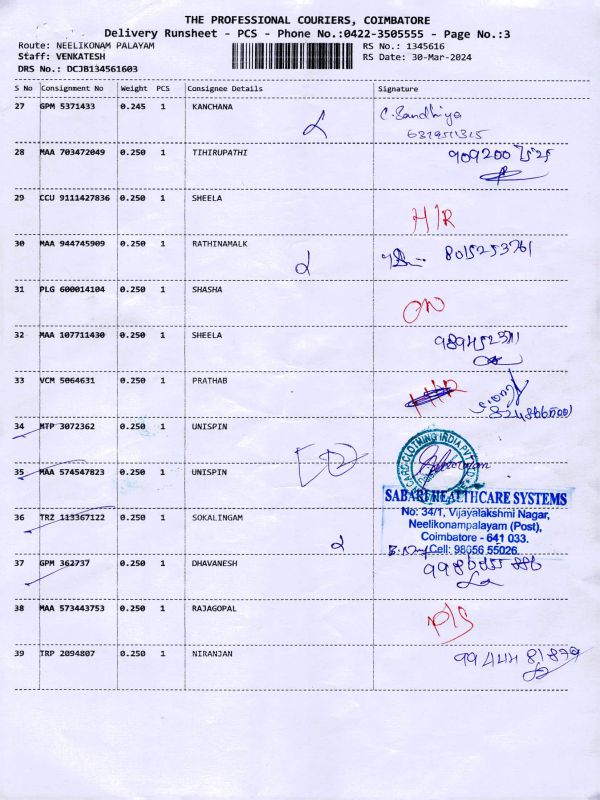 THE PROFESSIONAL COURIERS, COIMBATORE
Delivery Runsheet - PCS - Phone No.:0422-3505555 - Page No.:3
Route: NEELIKONAM PALAYAM RS No.: 1345616
Staff: VENKATESH RS Date: 30-Mar-2024
DRS No.: DCJB134561603
S No Consignment No Weight PCS Consignee Details Signature
27 GPM 5371433 0.245 1 KANCHANA C. Sandhiya
28 MAA 703472049 0.250 1 TIHIRUPATHI
29 CCU 9111427836 0.250 1 SHEELA H/R
30 MAA 944745909 0.250 1 RATHINAMALK 8015253761
31 PLG 600014104 0.250 1 SHASHA
32 MAA 107711430 0.250 1 SHEELA
33 VCM 5064631 0.250 1 PRATHAB
34 MTP 3072362 0.250 1 UNISPIN
35 MAA 574547823 0.250 1 UNISPIN
36 TRZ 113367122 0.250 1 SOKALINGAM
SABARI HEALTHCARE SYSTEMS
No: 34/1, Vijayalakshmi Nagar,
Neelikonampalayam (Post),
Coimbatore - 641 033.
Cell: 98056 55026
37 GPM 362737 0.250 1 DHAVANESH
38 MAA 573443753 0.250 1 RAJAGOPAL
39 TRP 2094807 0.250 1 NIRANJAN 99444 81879